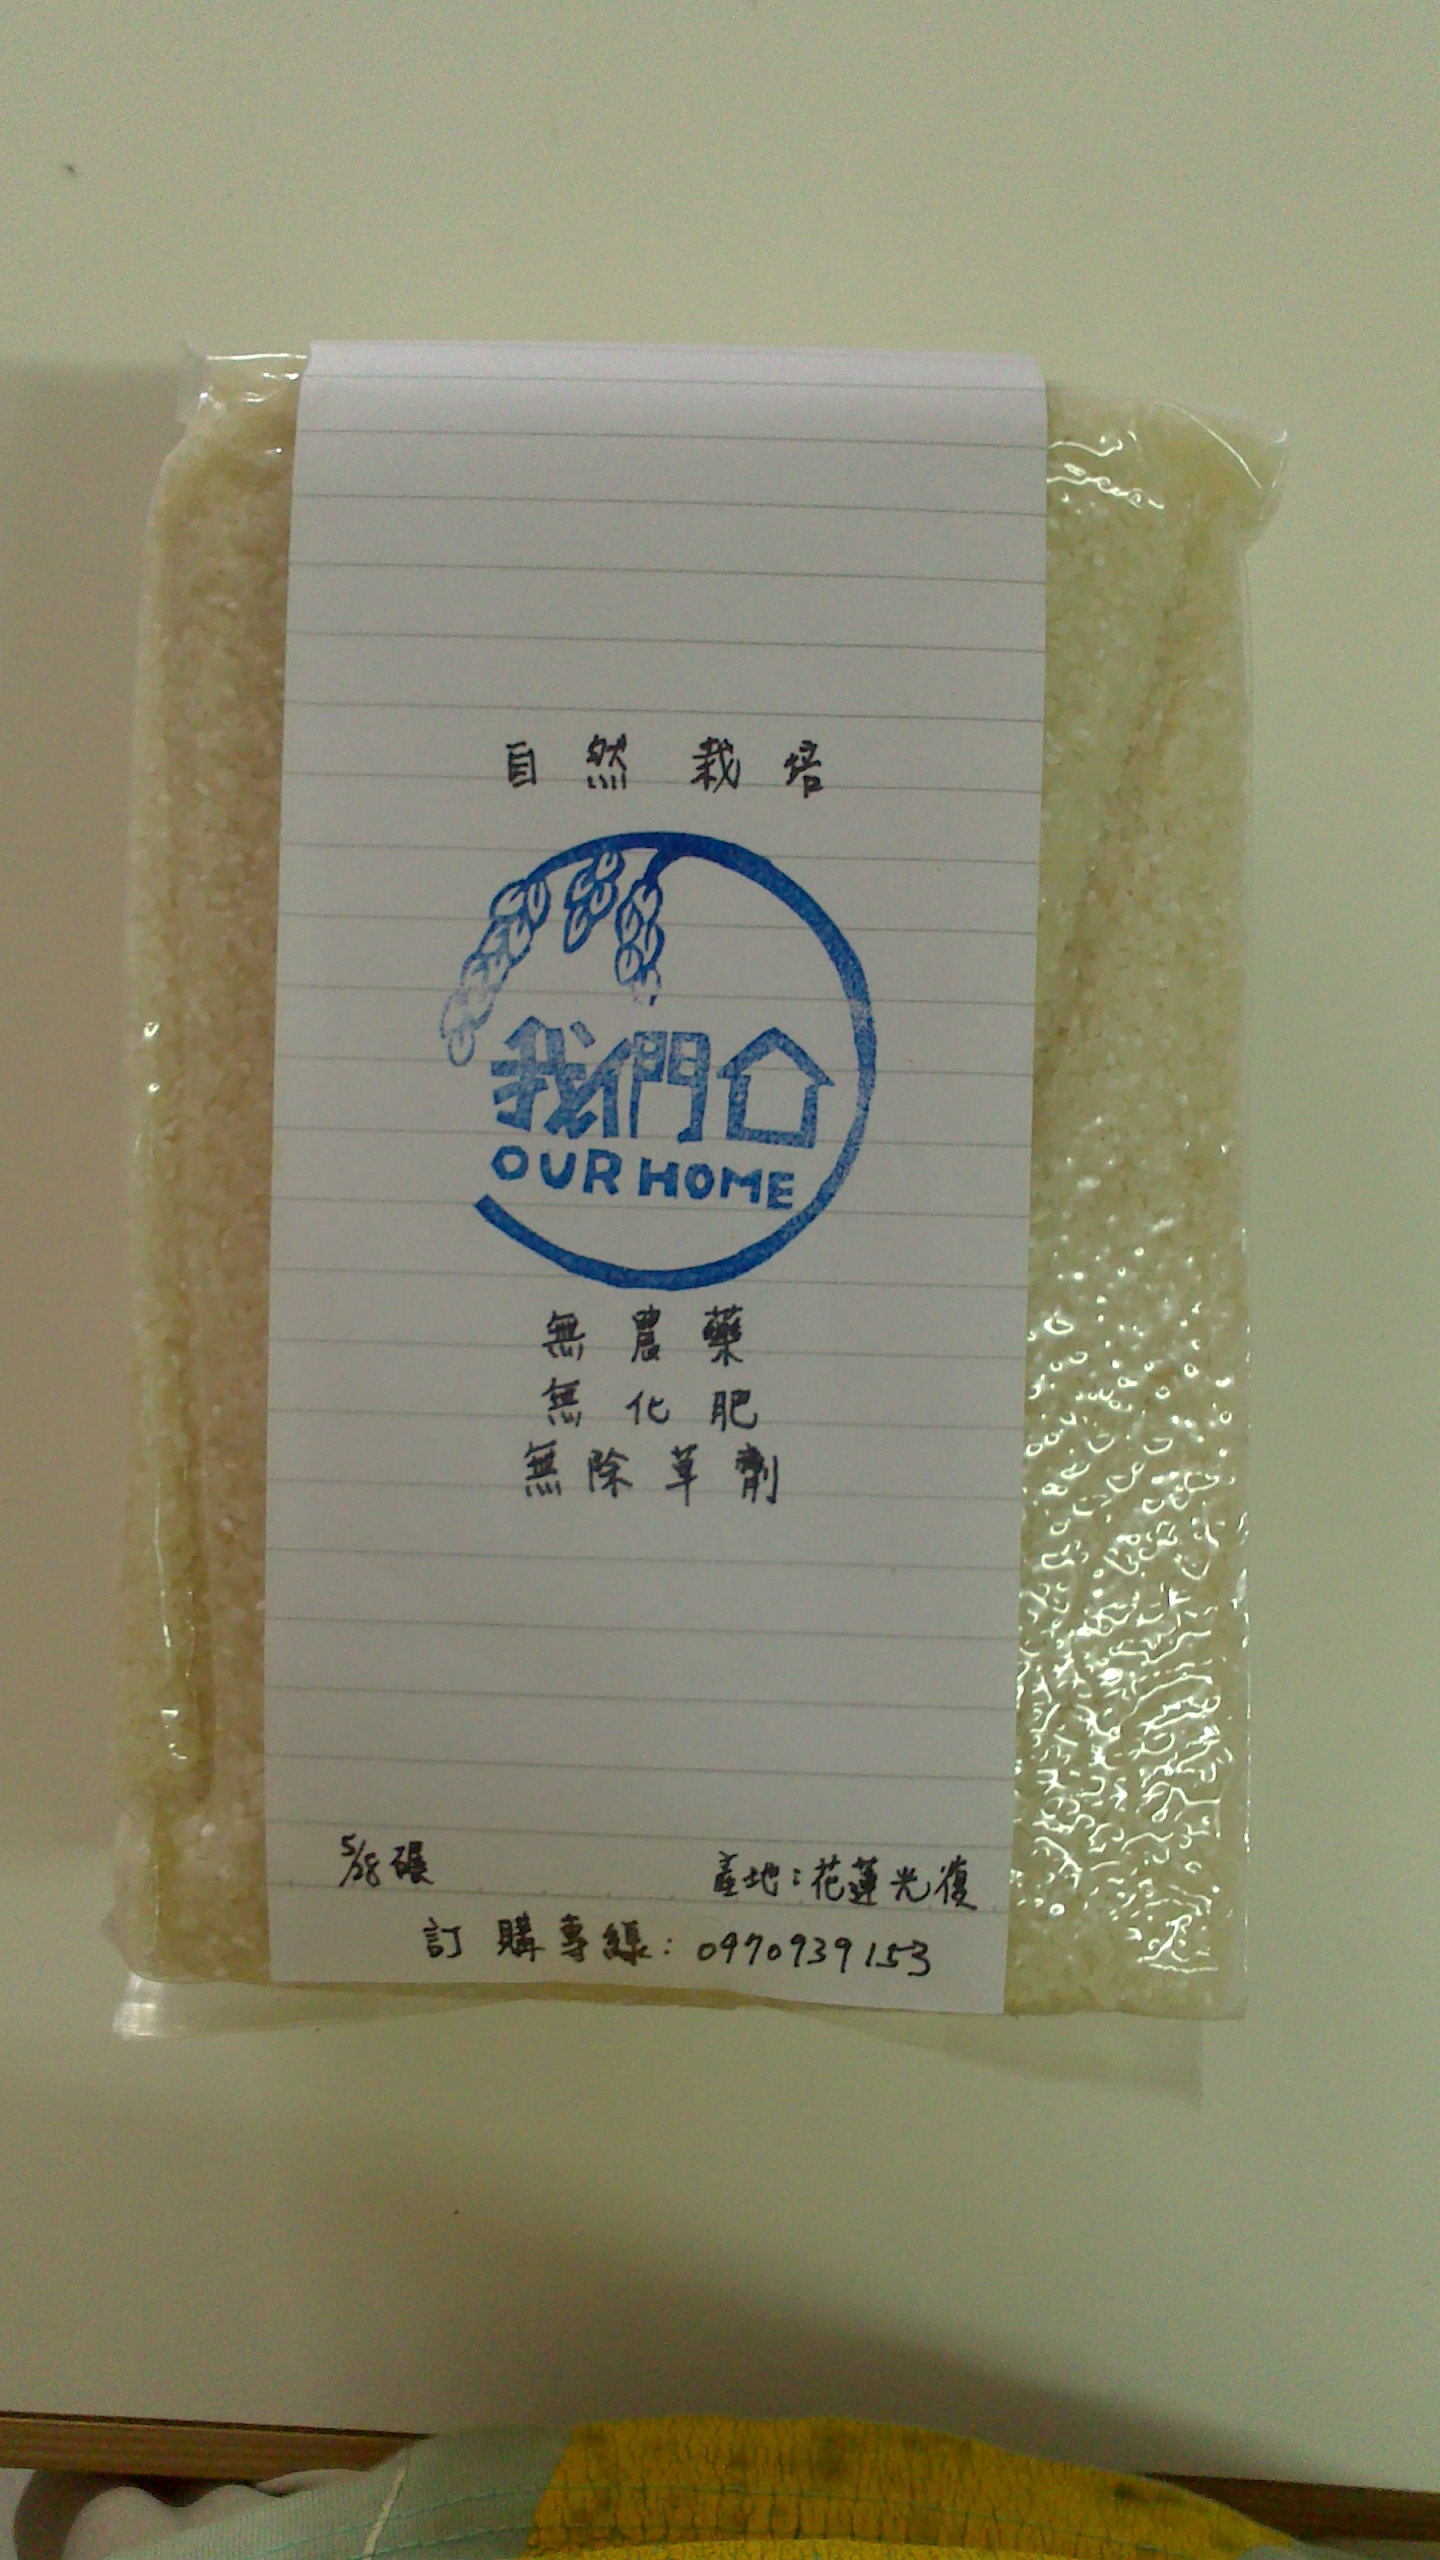 自然栽培
我們
OUR HOME
無農藥
無化肥
無除草劑
5/28碾
產地:花蓮光復
訂購專線:0970939153